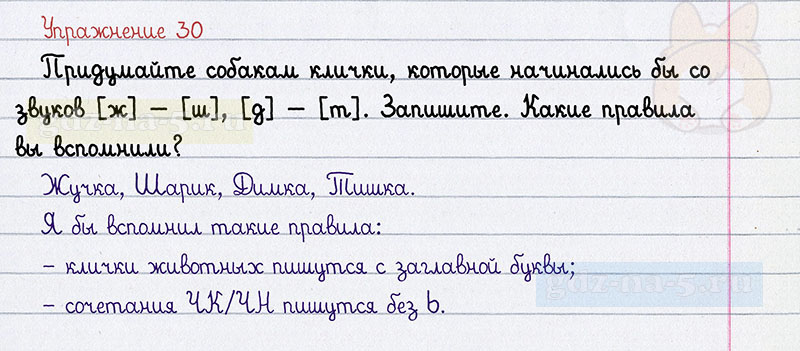 Упражнение 30
Придумайте собакам клички, которые начинались бы со
звуков [ж] – [ш], [д] – [т]. Запишите. Какие правила
вы вспомнили?
Жучка, Шарик, Димка, Тишка.
Я бы вспомнил такие правила:
– клички животных пишутся с заглавной буквы;
– сочетания ЧК/ЧН пишутся без Ь.
gdz-na-5.ru
gdz-na-5.ru